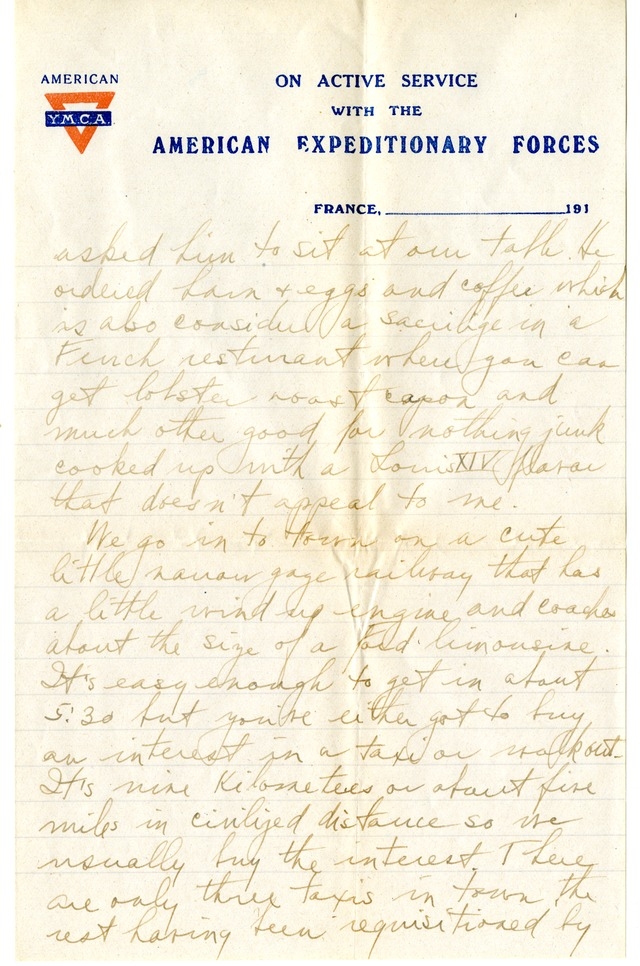 AMERICAN
Y.M.C.A.
ON ACTIVE SERVICE
WITH THE
AMERICAN EXPEDITIONARY FORCES
FRANCE, 191
asked him to sit at our table. He
ordered ham + eggs and coffee which
is also consider a sacrilige in a
French resturant where you can
get lobster roast capon and
much other good for nothing junk
cooked up with a Louis XIV flavor
that doesn't appeal to me.
We go in to town on a cute
little narrow gage railway that has
a little wind up engine and coaches
about the size of a Ford limousine.
It's easy enough to get in about
5:30 but you've either got to buy
an interest in a taxi or walk out.
It's nine Kilometers or about five
miles in civilized distance so we
usually buy the interest. There
are only three taxis in town the
rest having been requisitioned by